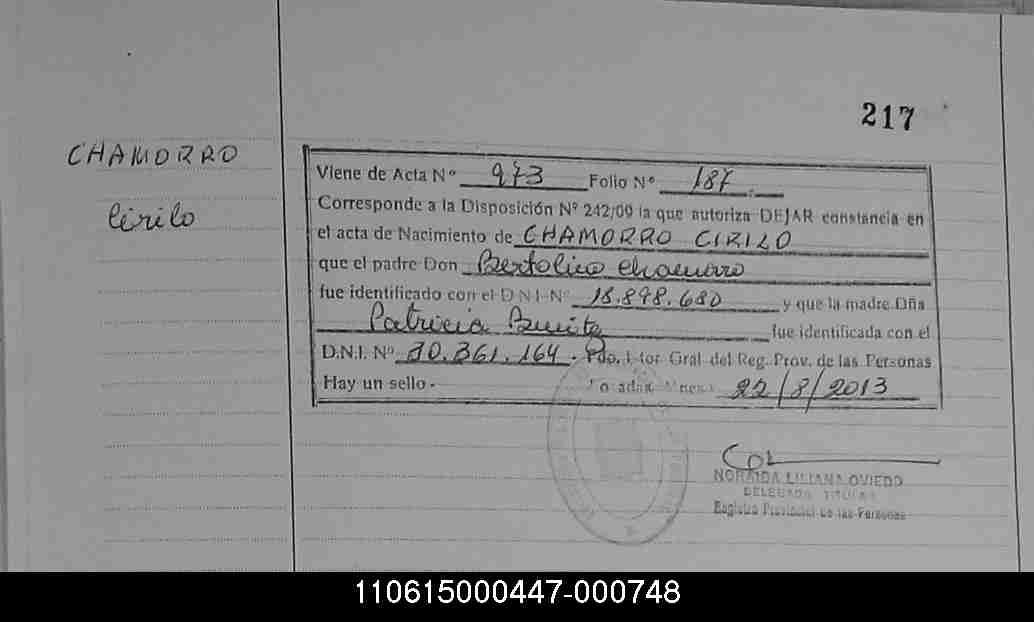 217
CHAMORRO
Cirilo
Viene de Acta Nº 973 Folio Nº 187.
Corresponde a la Disposición Nº 242/09 la que autoriza DEJAR constancia en
el acta de Nacimiento de CHAMORRO CIRILO
que el padre Don Bertolico Chamorro
fue identificado con el D N I Nº 18.898.680 y que la madre Dña
Patricia Benitez
fue identificada con el
D.N.I. Nº 30.361.164. Fdo. Gral del Reg. Prov. de las Personas
Hay un sello - 22/8/2013
NORAIDA LILIANA OVIEDO
DELEGADA TITULAR
Registro Provincial de las Personas
110615000447-000748